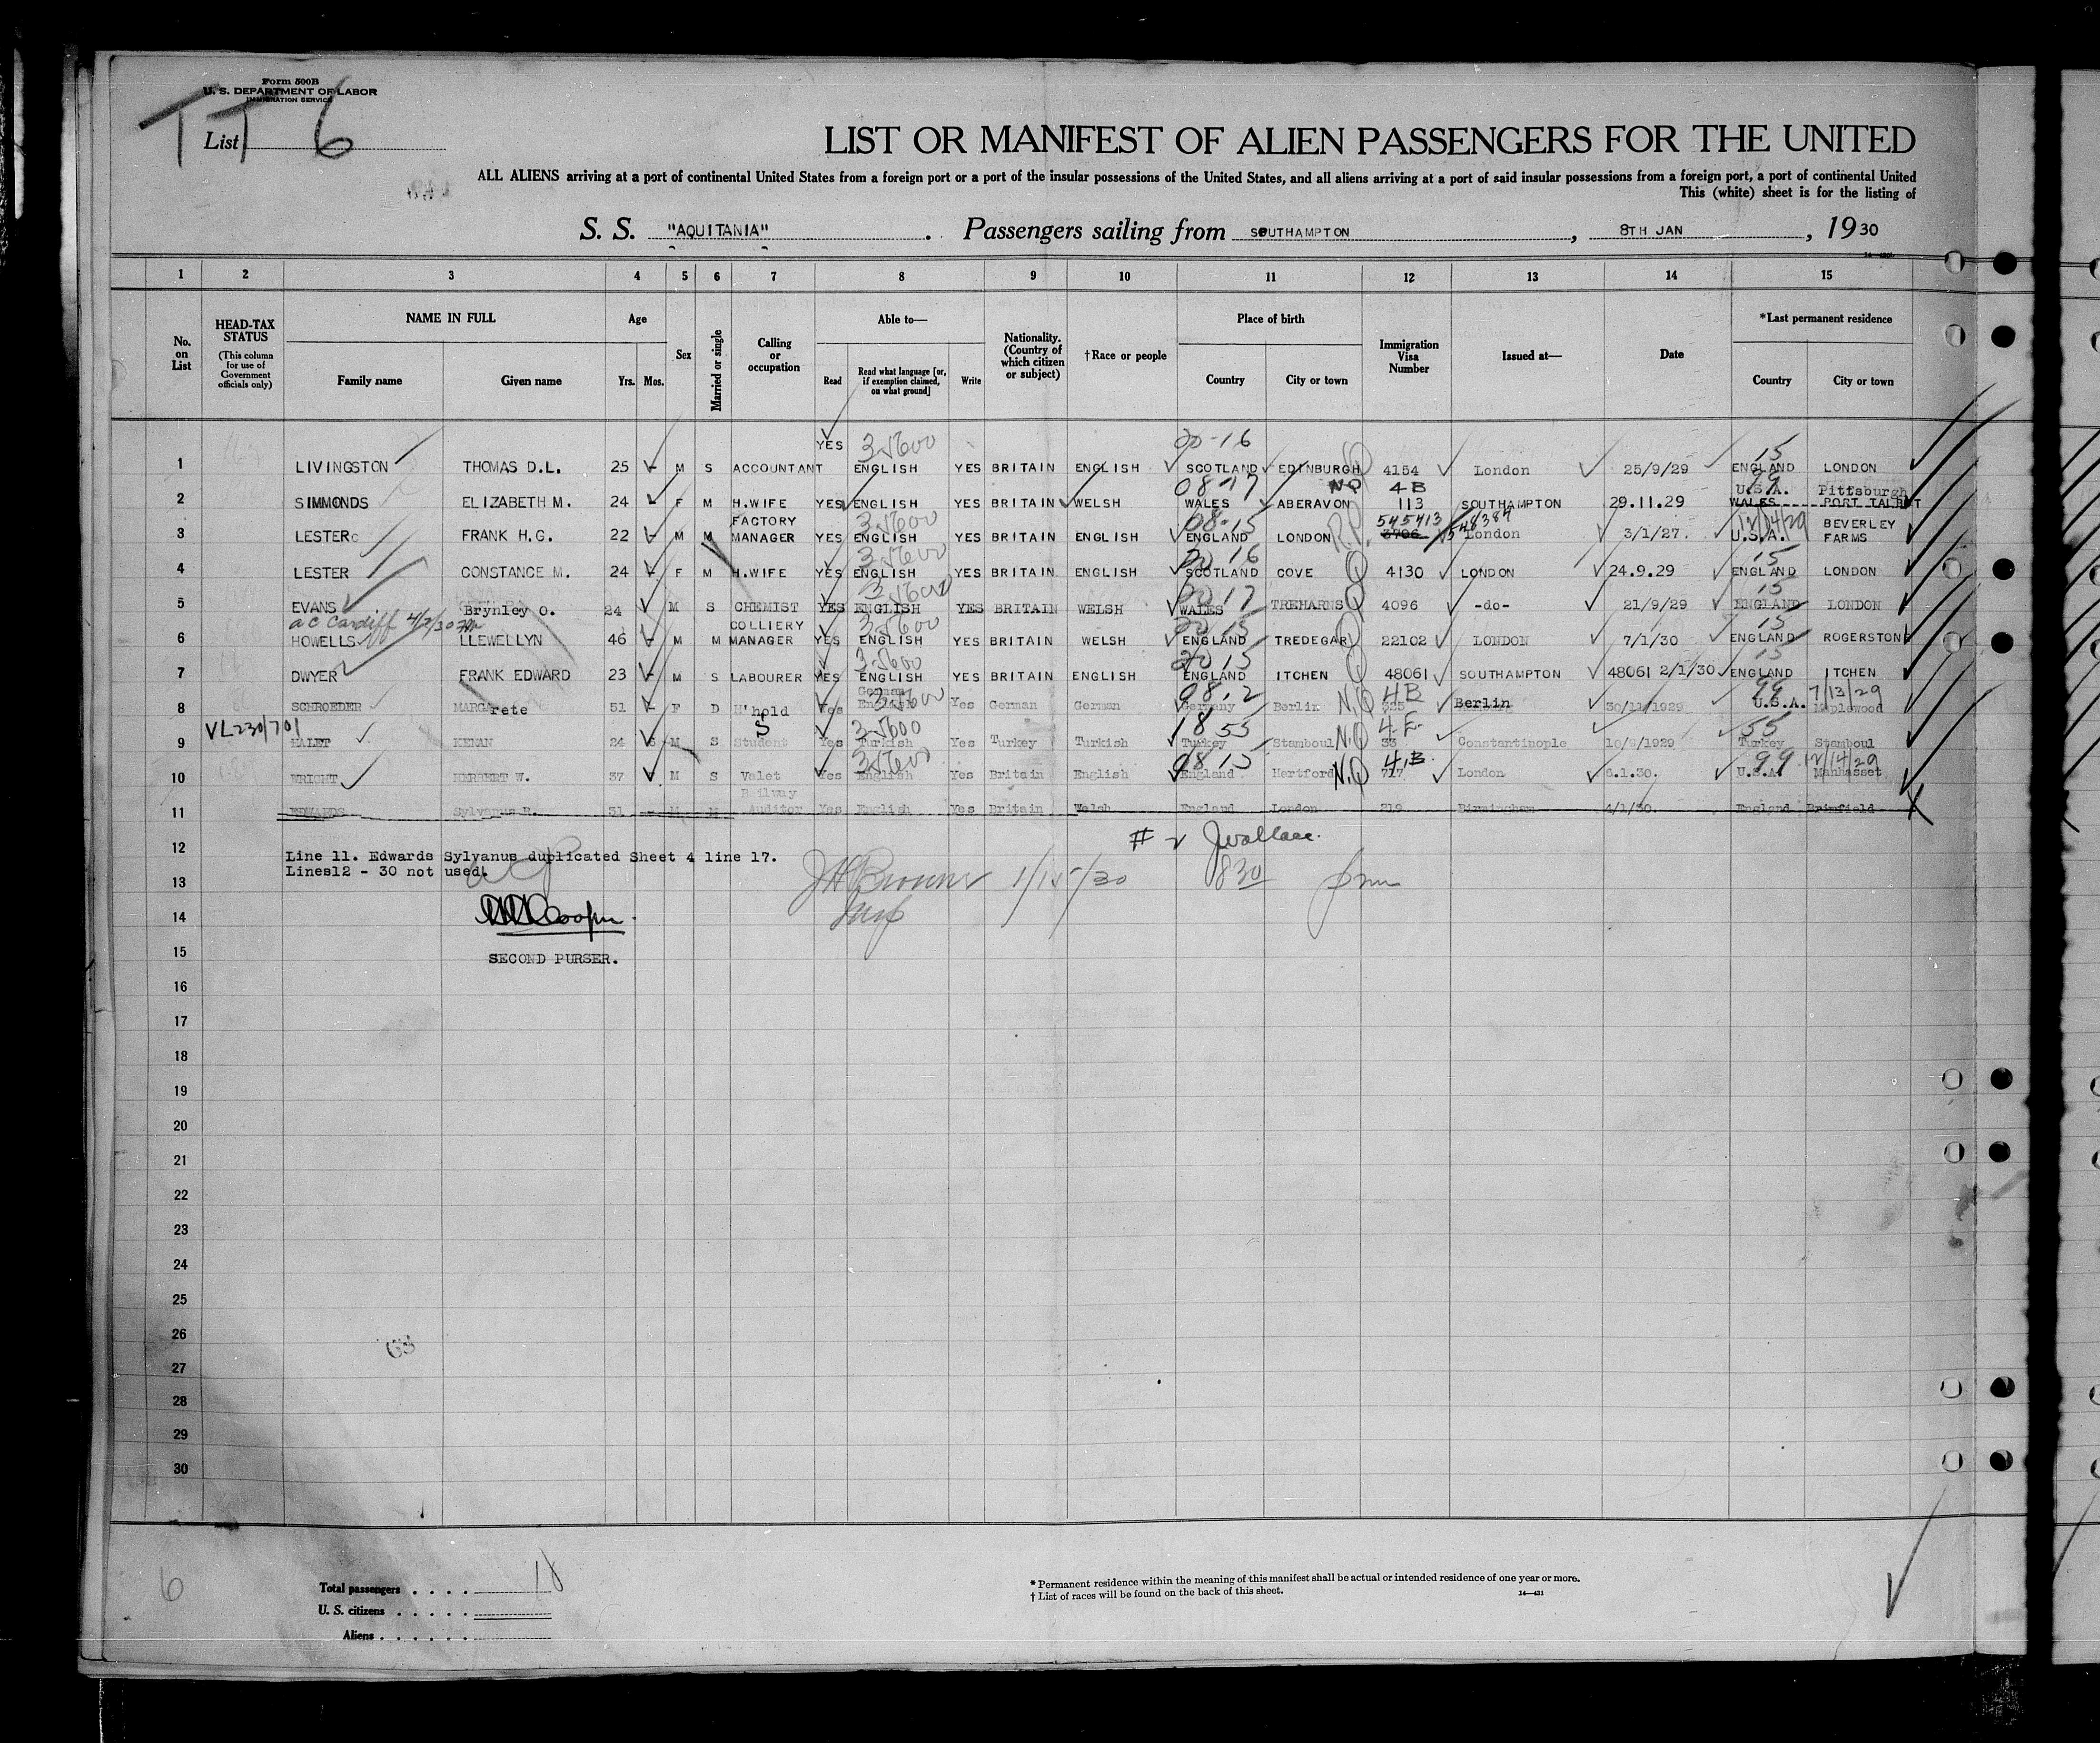 Form 500B
U. S. DEPARTMENT OF LABOR
IMMIGRATION SERVICE
TT 6
List
LIST OR MANIFEST OF ALIEN PASSENGERS FOR THE UNITED
ALL ALIENS arriving at a port of continental United States from a foreign port or a port of the insular possessions of the United States, and all aliens arriving at a port of said insular possessions from a foreign port, a port of continental United
This (white) sheet is for the listing of
S. S. "AQUITANIA". Passengers sailing from SOUTHAMPTON, 8TH JAN, 1930
1 2 3 4 5 6 7 8 9 10 11 12 13 14 15
No. on List
HEAD-TAX STATUS (This column for use of Government officials only)
NAME IN FULL Family name Given name
Age Yrs. Mos.
Sex
Married or single
Calling or occupation
Able to— Read Read what language [or, if exemption claimed, on what ground] Write
Nationality. (Country of which citizen or subject)
†Race or people
Place of birth Country City or town
Immigration Visa Number
Issued at—
Date
*Last permanent residence Country City or town
20-16 15
1 LIVINGSTON THOMAS D.L. 25 - M S ACCOUNTANT YES ENGLISH YES BRITAIN ENGLISH SCOTLAND EDINBURGH 4154 London 25/9/29 ENGLAND LONDON
08-17 NQ 4B 99 U.S.A. Pittsburgh
2 SIMMONDS ELIZABETH M. 24 - F M H.WIFE YES ENGLISH YES BRITAIN WELSH WALES ABERAVON 113 SOUTHAMPTON 29.11.29 WALES PORT TALBOT
08-15 R.P. 545413 12/14/29
3 LESTER FRANK H.G. 22 - M M FACTORY MANAGER YES ENGLISH YES BRITAIN ENGLISH ENGLAND LONDON 3706 London 3/1/27. U.S.A. BEVERLEY FARMS
20 16 Q 15
4 LESTER CONSTANCE M. 24 - F M H.WIFE YES ENGLISH YES BRITAIN ENGLISH SCOTLAND COVE 4130 LONDON 24.9.29 ENGLAND LONDON
20 17 Q 15
5 EVANS Brynley O. 24 M S CHEMIST YES ENGLISH YES BRITAIN WELSH WALES TREHARNS 4096 -do- 21/9/29 ENGLAND LONDON
ac Cardiff 4/2/30
20 15 Q 15
6 HOWELLS LLEWELLYN 46 - M M COLLIERY MANAGER YES ENGLISH YES BRITAIN WELSH ENGLAND TREDEGAR 22102 LONDON 7/1/30 ENGLAND ROGERSTONE
20 15 Q 15
7 DWYER FRANK EDWARD 23 - M S LABOURER YES ENGLISH YES BRITAIN ENGLISH ENGLAND ITCHEN 48061 SOUTHAMPTON 48061 2/1/30 ENGLAND ITCHEN
08.2 N.Q 4B 99 7/13/29
8 SCHROEDER MARGArete 51 - F D H'hold Yes German English Yes German German Germany Berlin Berlin 30/11/1929 U.S.A. Maplewood
VL230/701
18 55 N.Q 4-E 55
9 HALET KENAN 24 M S Student Yes Turkish Yes Turkey Turkish Turkey Stamboul 33 Constantinople 10/9/1929 Turkey Stamboul
08 15 N.Q 4B 99 12/14/29
10 WRIGHT HERBERT W. 37 M S Valet Yes English Yes Britain English England Hertford 717 London 6.1.30. U.S.A. Manhasset
11 EDWARDS Sylvanus R. 51 - M M Railway Auditor Yes English Yes Britain Welsh England London 219 Birmingham 4/1/30. England Brimfield X
12
# J Wallace.
Line 11. Edwards Sylvanus duplicated Sheet 4 line 17.
Lines12 - 30 not used.
13
1/15/30 830
14
Cooper
15 SECOND PURSER.
16
17
18
19
20
21
22
23
24
25
26
63
27
28
29
30
6
Total passengers . . . . 10
U. S. citizens . . . . .
Aliens . . . . . .
* Permanent residence within the meaning of this manifest shall be actual or intended residence of one year or more.
† List of races will be found on the back of this sheet.
14—421